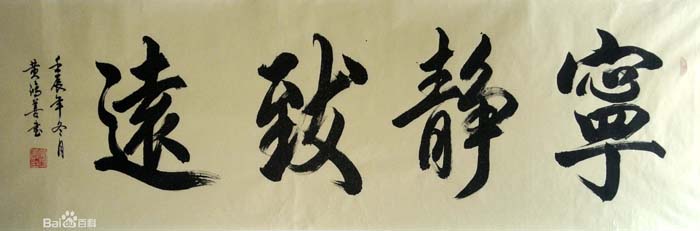 寧靜致遠
壬辰年冬月
黄鴻善書
Bai百科